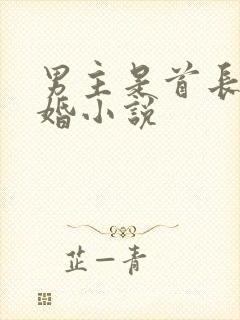 男主是首長
婚小說
芷一青